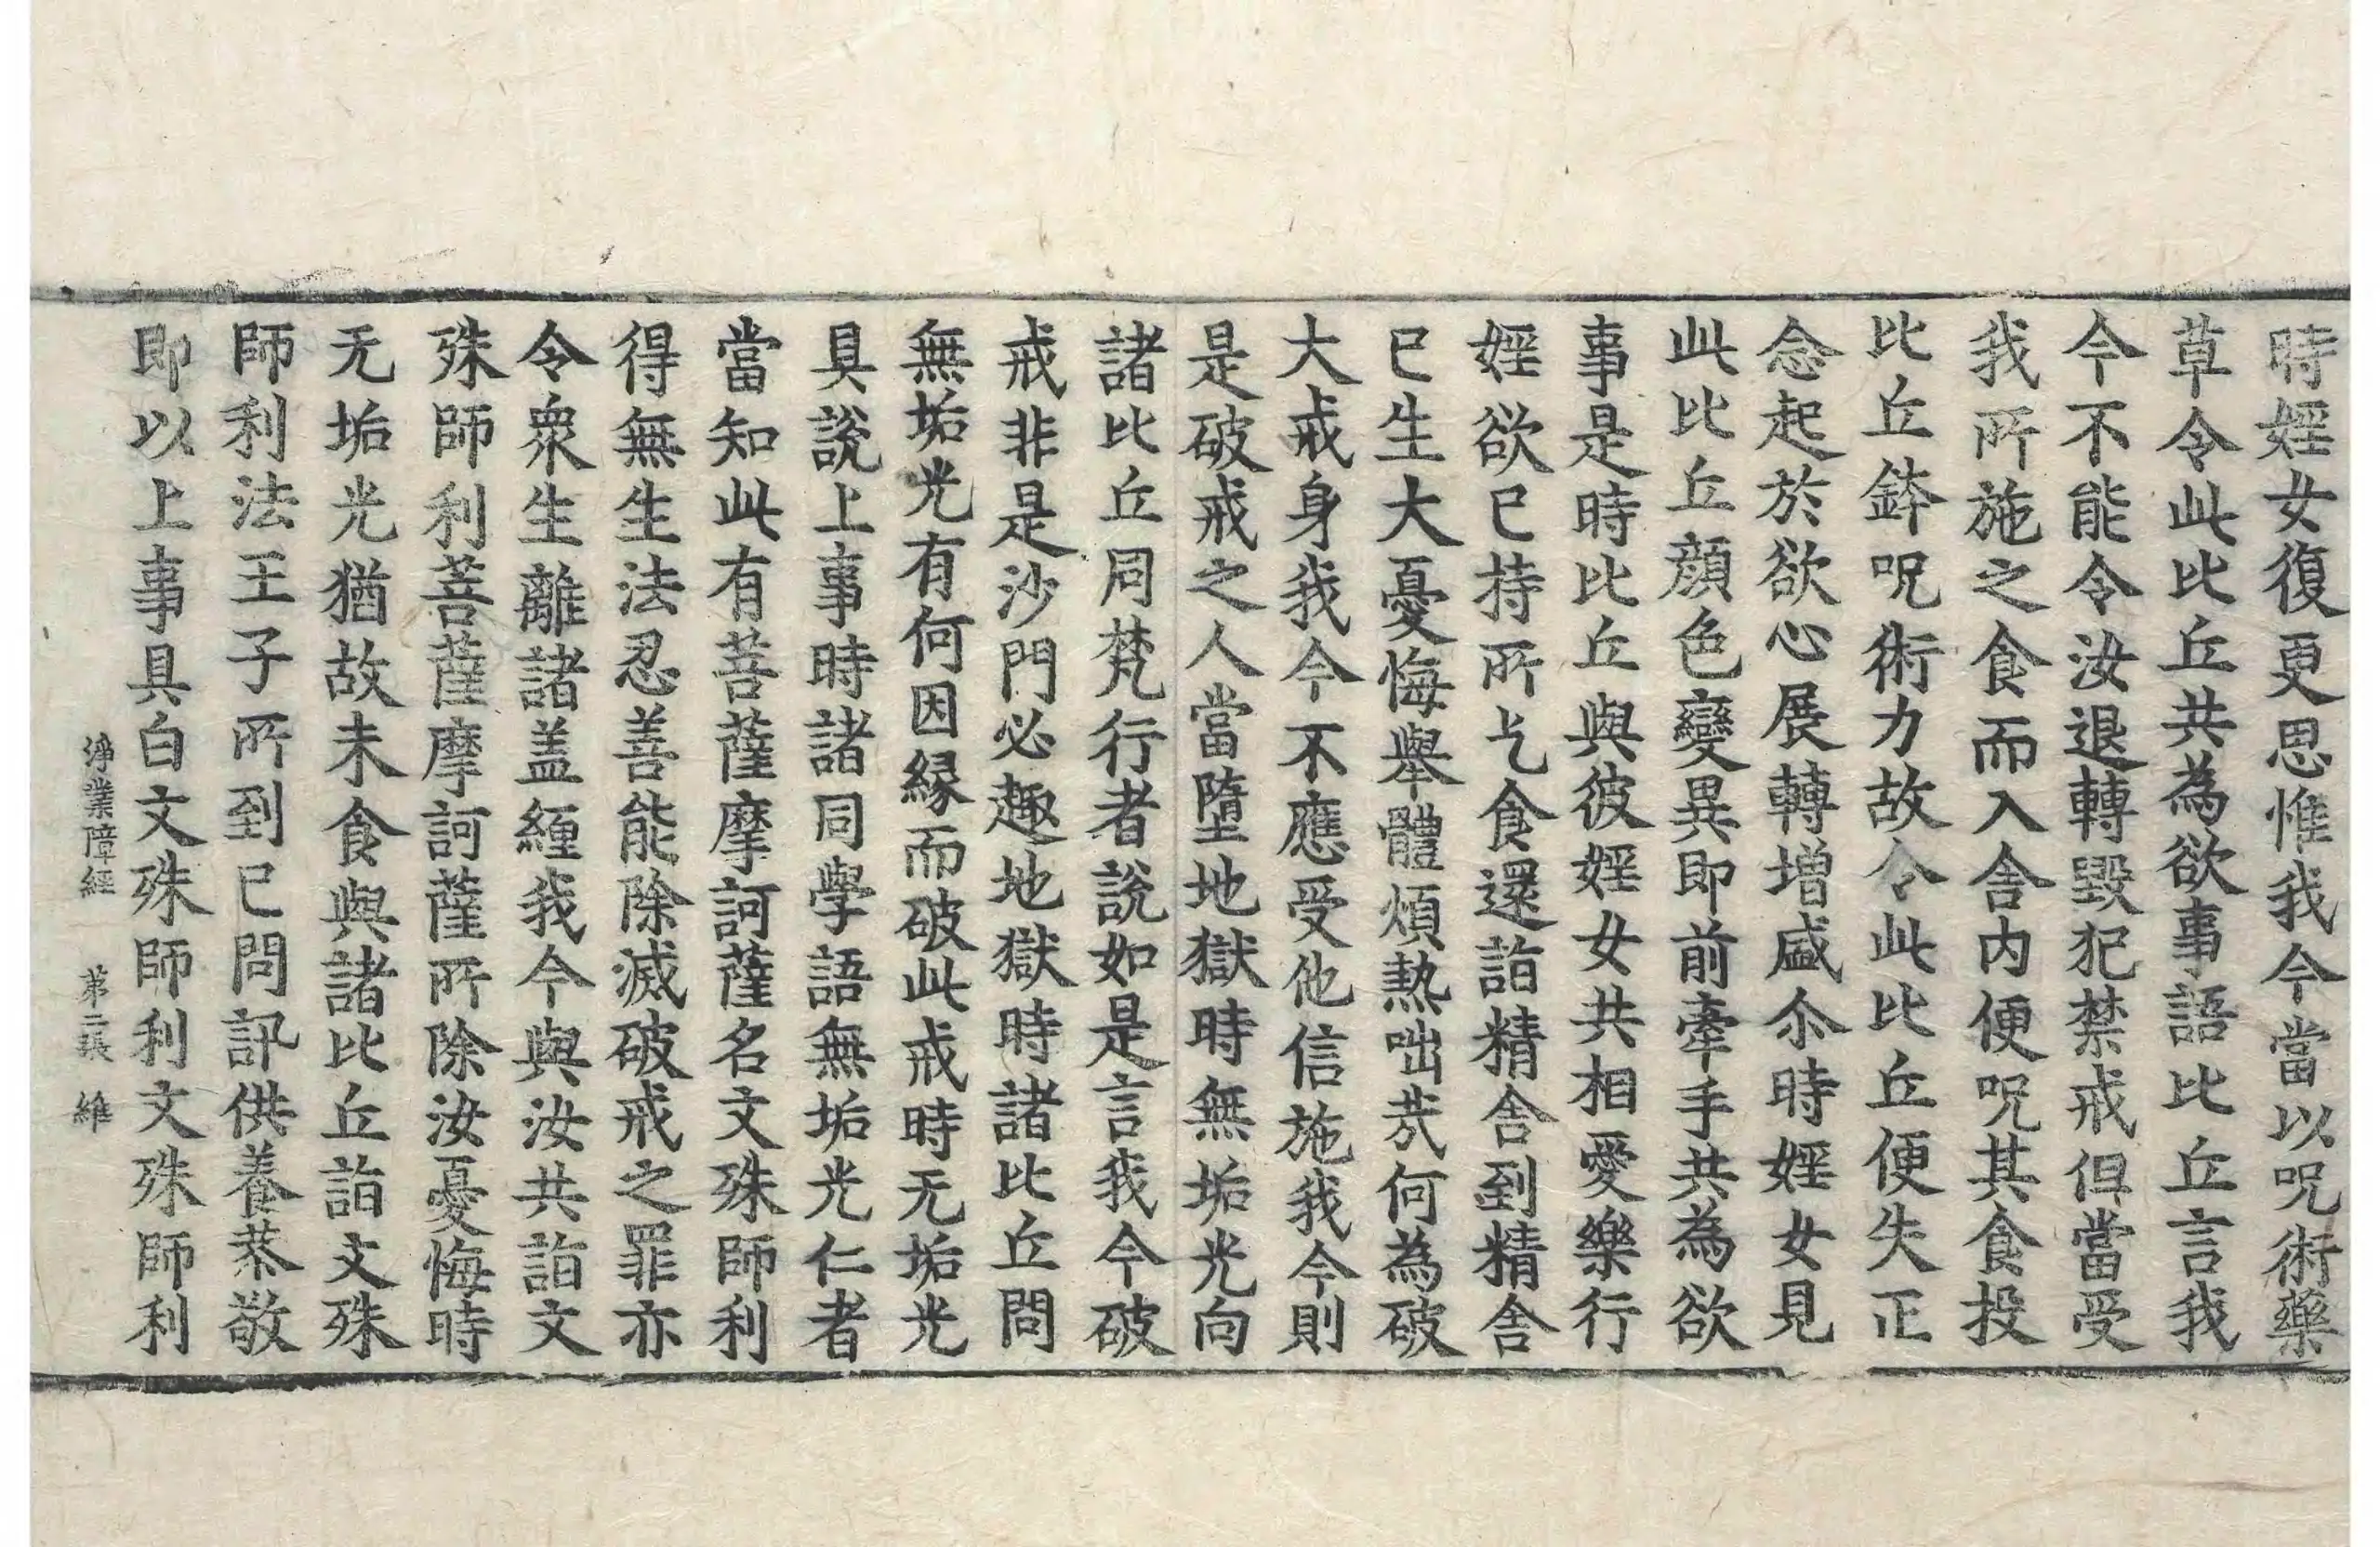 時婬女復更思惟我今當以呪術藥
草令此比丘共為欲事語比丘言我
今不能令汝退轉毀犯禁戒但當受
我所施之食而入舍内便呪其食投
比丘鉢呪術力故令此比丘便失正
念起於欲心展轉增盛尒時婬女見
此比丘顔色變異即前牽手共為欲
事是時比丘與彼婬女共相愛樂行
婬欲已持所乞食還詣精舍到精舍
已生大憂悔舉體煩熱咄㢤何為破
大戒身我今不應受他信施我今則
是破戒之人當墮地獄時無垢光向
諸比丘同梵行者說如是言我今破
戒非是沙門必趣地獄時諸比丘問
無垢光有何因緣而破此戒時无垢光
具說上事時諸同學語無垢光仁者
當知此有菩薩摩訶薩名文殊師利
得無生法忍善能除滅破戒之罪亦
令衆生離諸盖纏我今與汝共詣文
殊師利菩薩摩訶薩所除汝憂悔時
无垢光猶故未食與諸比丘詣文殊
師利法王子所到已問訊供養恭敬
即以上事具白文殊師利文殊師利
淨業障經 第二張 維